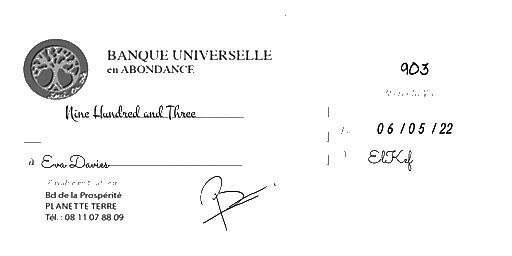 BANQUE UNIVERSELLE
en ABONDANCE
903
Nine Hundred and Three
06/05/22
à Eva Davies
ElKef
Bd de la Prospérité
PLANETTE TERRE
Tél. : 08 11 07 88 09